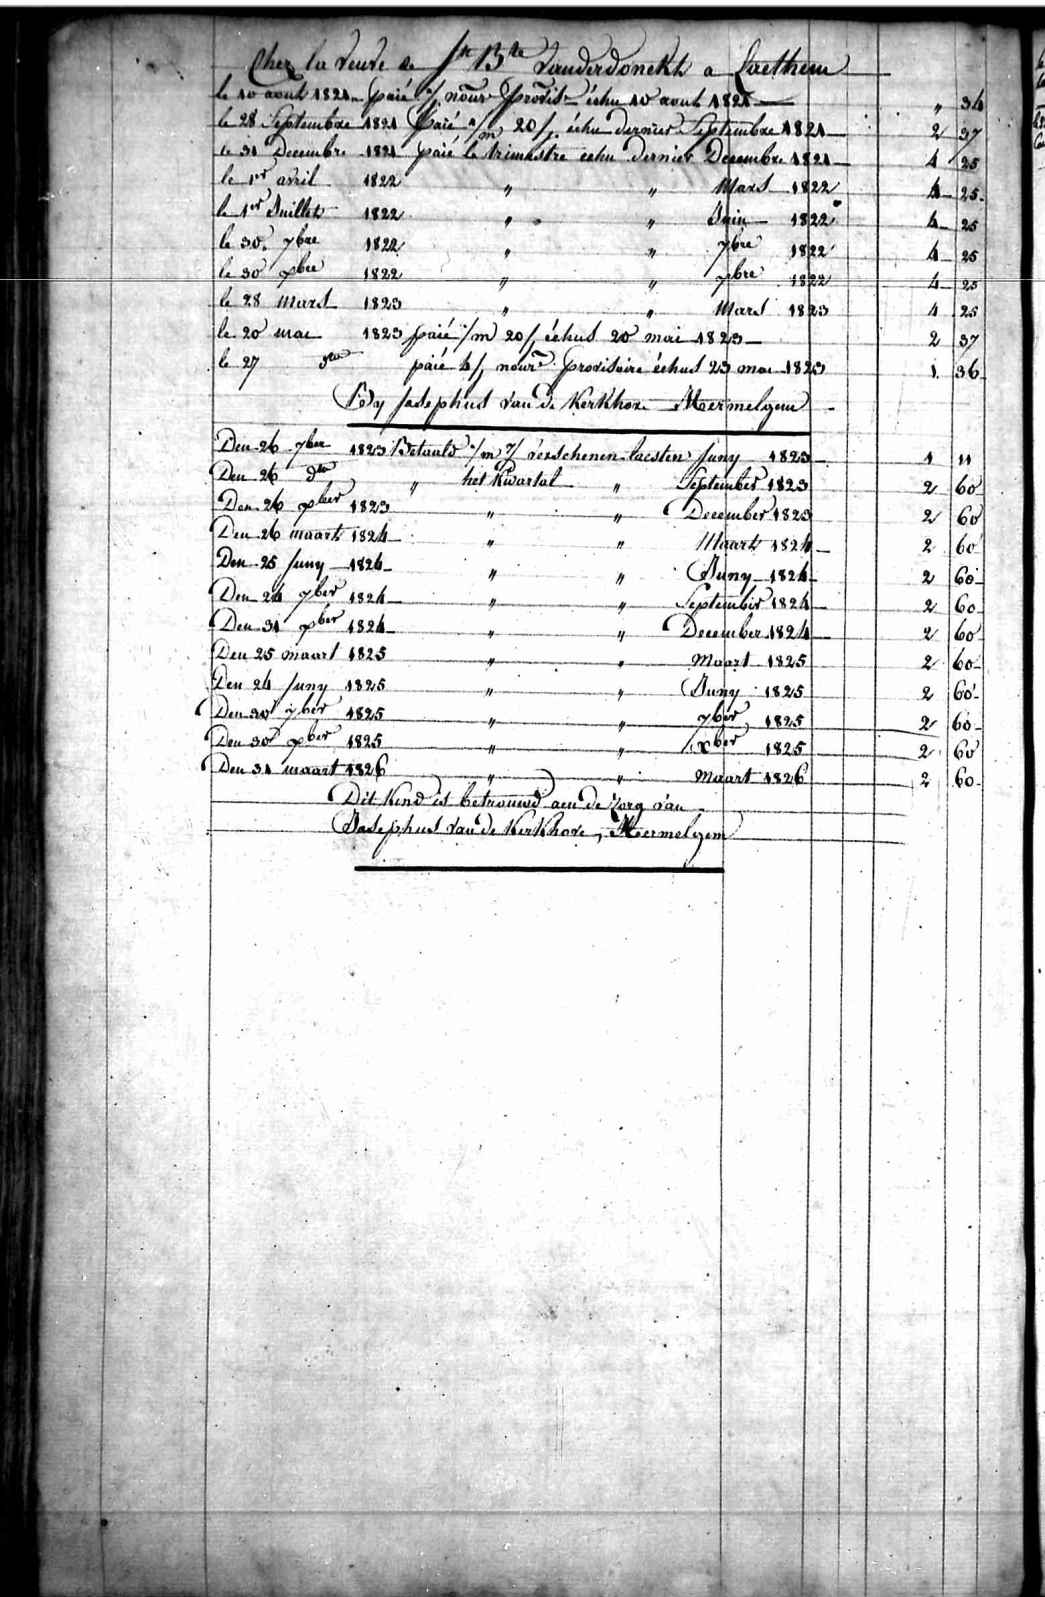 Chez la veuve de Jn Bte Vanderdonckt a Laethem
le 10 aout 1821 paié p/ nourr provis échu 10 aout 1821 " 34
le 28 Septembre 1821 Paié 1/m 20/j échu dernier Septembre 1821 2 37
le 31 Decembre 1821 paié le trimestre échu dernier Decembre 1821 4 25
le 1er avril 1822 " " Mars 1822 4 25
le 1er Juillet 1822 " " Juin 1822 4 25
le 30 7bre 1822 " " 7bre 1822 4 25
le 30 xbre 1822 " " xbre 1822 4 25
le 28 Mars 1823 " " Mars 1823 4 25
le 20 mai 1823 paié 1/m 20/j échus 20 mai 1823 2 37
le 27 dto paié 4/j nourre provisoire échus 23 mai 1823 1 36
bÿ Josephus van de Kerkhove Mermelgem
Den 26 7ber 1823 Betaald 1/m 7/j verschenen laesten Juny 1823 1 11
Den 26 dto " het Kwartal " September 1823 2 60
Den 26 xber 1823 " " December 1823 2 60
Den 26 maart 1824 " " Maart 1824 2 60
Den 25 Juny 1824 " " Juny 1824 2 60
Den 24 7ber 1824 " " September 1824 2 60
Den 31 xber 1824 " " December 1824 2 60
Den 25 maart 1825 " " Maart 1825 2 60
Den 24 Juny 1825 " " Juny 1825 2 60
Den 30 7ber 1825 " " 7ber 1825 2 60
Den 30 xber 1825 " " xber 1825 2 60
Den 31 maart 1826 " " Maart 1826 2 60
Dit Kind is betrouwd aen de zorg van
Josephus van de Kerkhove, Mermelgem